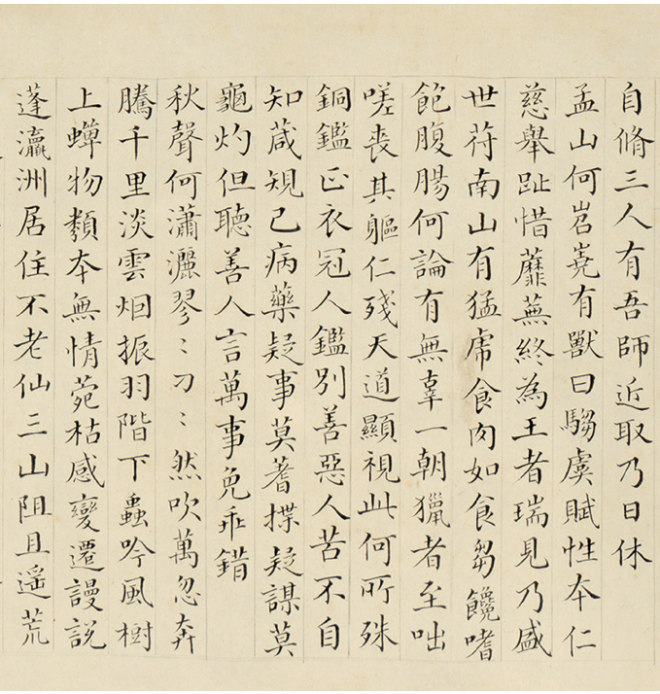 自脩三人有吾師近取乃日休
孟山何岧嶤有獸曰騶虞賦性本仁
慈舉趾惜蘼蕪終為王者瑞見乃盛
世苻南山有猛虎食肉如食芻饞嗜
飽腹腸何論有無辜一朝獵者至咄
嗟喪其軀仁殘天道顯視此何所殊
銅鑑正衣冠人鑑別善惡人苦不自
知蒧規己病藥疑事莫蓍揲疑謀莫
龜灼但聽善人言萬事免乖錯
秋聲何瀟灑翏〻刁〻然吹萬忽奔
騰千里淡雲烟振羽階下蟲吟風樹
上蟬物類本無情菀枯感變遷謾說
蓬瀛洲居住不老仙三山阻且遥荒